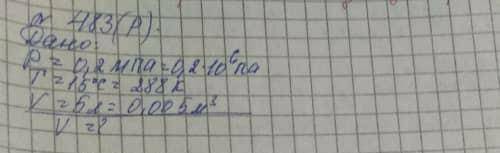 № 483(Р).
Дано:
P = 0,2 мпа = 0,2·10⁶ па
T = 15°С = 288 К
V = 5л = 0,005 м³
V = ?